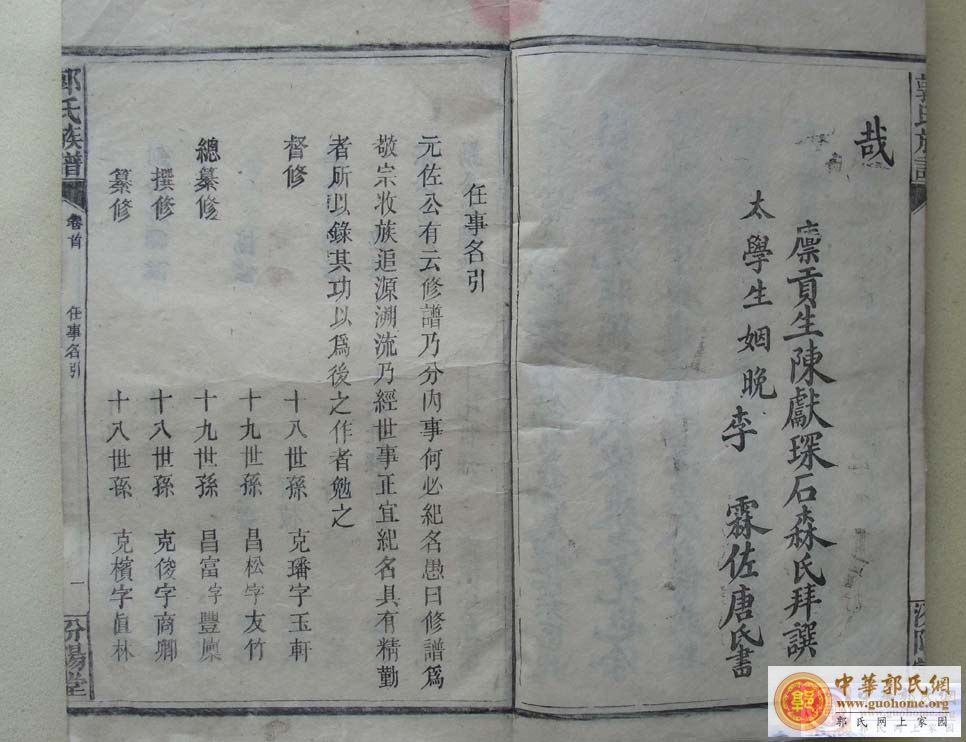 哉
廩貢生陳獻琛石森氏拜譔
太學生姻晚李霖佐唐氏書
任事名引
元佐公有云修譜乃分內事何必紀名愚曰修譜爲
敬宗收族追源溯流乃經世事正宜紀名具有精勤
者所以錄其功以爲後之作者勉之
督修 十八世孫 克璠字玉軒
十九世孫 昌松字友竹
總纂修 十九世孫 昌富字豐廩
撰修 十八世孫 克俊字商卿
纂修 十八世孫 克檳字眞林
郭氏族譜 卷首 任事名引 一 汾陽堂
郭氏族譜
汾陽堂
中華郭氏網
www.guohome.org
郭氏网上家园